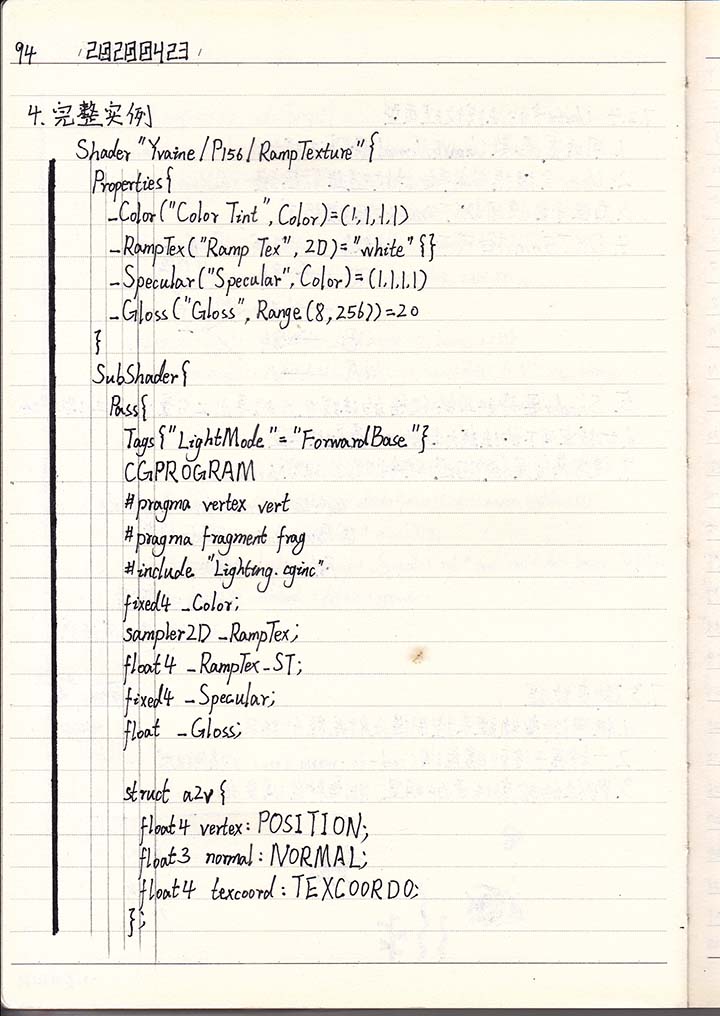 94 20200423
4. 完整实例
Shader "Yvaine/P156/RampTexture"{
Properties{
_Color("Color Tint", Color)=(1,1,1,1)
_RampTex("Ramp Tex", 2D)="white"{}
_Specular("Specular", Color)=(1,1,1,1)
_Gloss("Gloss", Range(8,256))=20
}
SubShader{
Pass{
Tags{"LightMode"="ForwardBase"}
CGPROGRAM
#pragma vertex vert
#pragma fragment frag
#include "Lighting.cginc"
fixed4 _Color;
sampler2D _RampTex;
float4 _RampTex_ST;
fixed4 _Specular;
float _Gloss;
struct a2v{
float4 vertex: POSITION;
float3 normal: NORMAL;
float4 texcoord: TEXCOORD0;
};